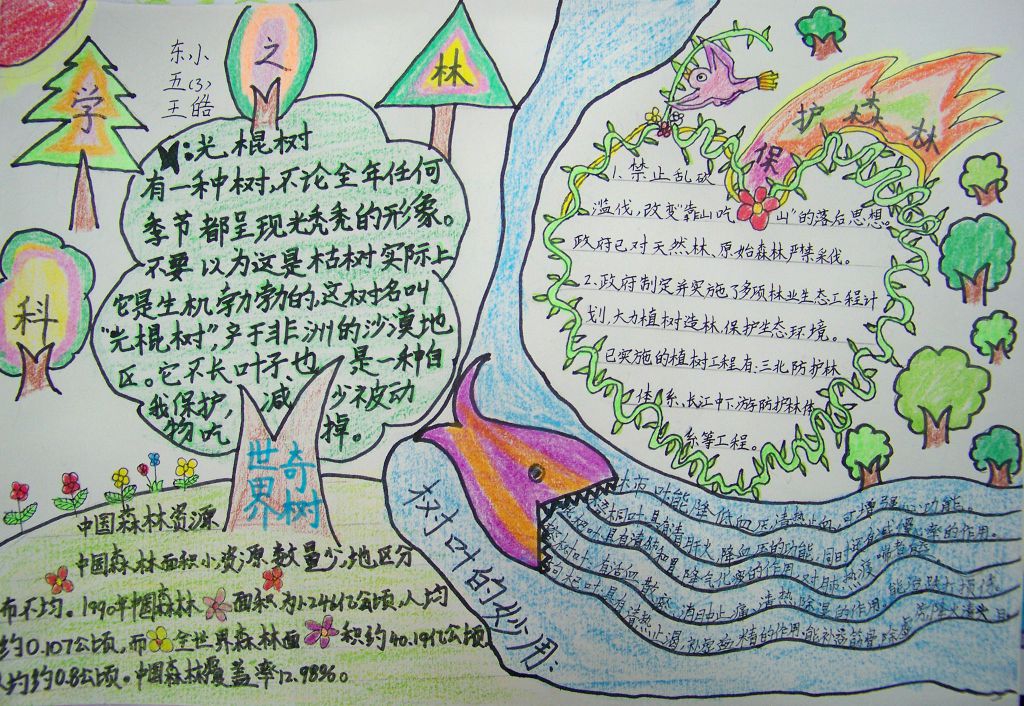 科
学
之
林
东小
五(3)
王皓
:光棍树
有一种树,不论全年任何
季节都呈现光秃秃的形象。
不要以为这是枯树实际上
它是生机勃勃的,这树名叫
“光棍树”,产于非洲的沙漠地
区。它不长叶子也是一种自
我保护,减少被动
物吃掉。
世界奇树
保护森林
1、禁止乱砍
滥伐,改变“靠山吃山”的落后思想。
政府已对天然林、原始森林严禁采伐。
2、政府制定并实施了多项林业生态工程计
划,大力植树造林,保护生态环境。
已实施的植树工程有:三北防护林
体系、长江中下游防护林体
系等工程。
中国森林资源
中国森林面积小,资源数量少,地区分
布不均。1990年中国森林面积为1.246亿公顷,人均
约0.107公顷,而全世界森林面积约40.19亿公顷
人均约0.8公顷。中国森林覆盖率12.98%。
树叶的妙用:
叶能降低血压,清热止血,可增强心功能。
叶具有清肝火,降血压的功能,同时还有减慢心率的作用。